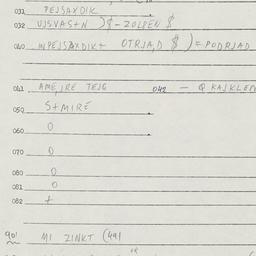 031 PEJSAXDIK
032 UJSVAS+N )$-ZOLPEN $
040 INPEJSAXDIK+ OTRJA,D $ )=PODRJAD
041 AME,RE TEJG 042 - Q KAJKLEM
050 S+MIRÉ
060 O
070 O
080 O
081 O
082 +
90! MI ZINKT (491